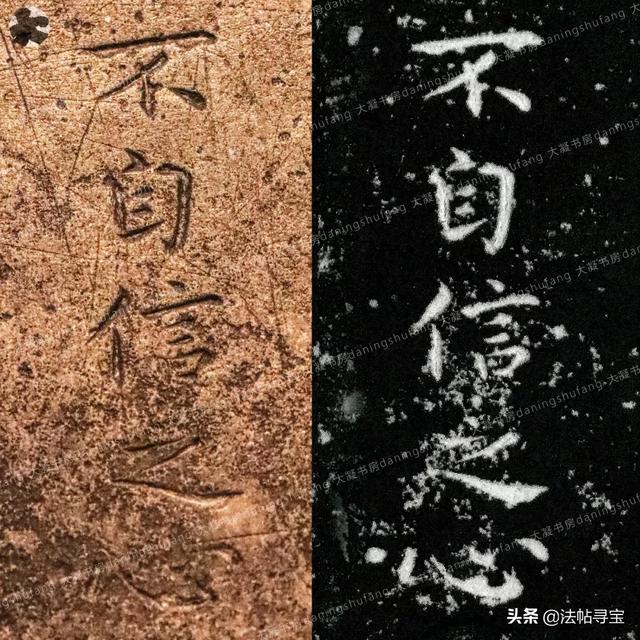 不自信之心
不自信之心
大凝书房daningshufang
头条 @法帖寻宝